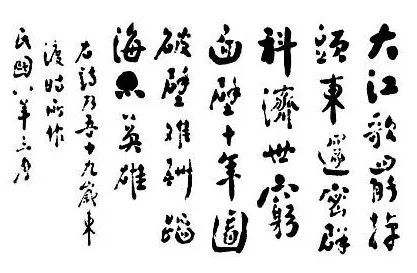 大江歌罷掉
頭東邃密群
科濟世窮
面壁十年圖
破壁難酬蹈
海亦英雄
右詩乃吾十九歲東
渡時所作
民國八年三月